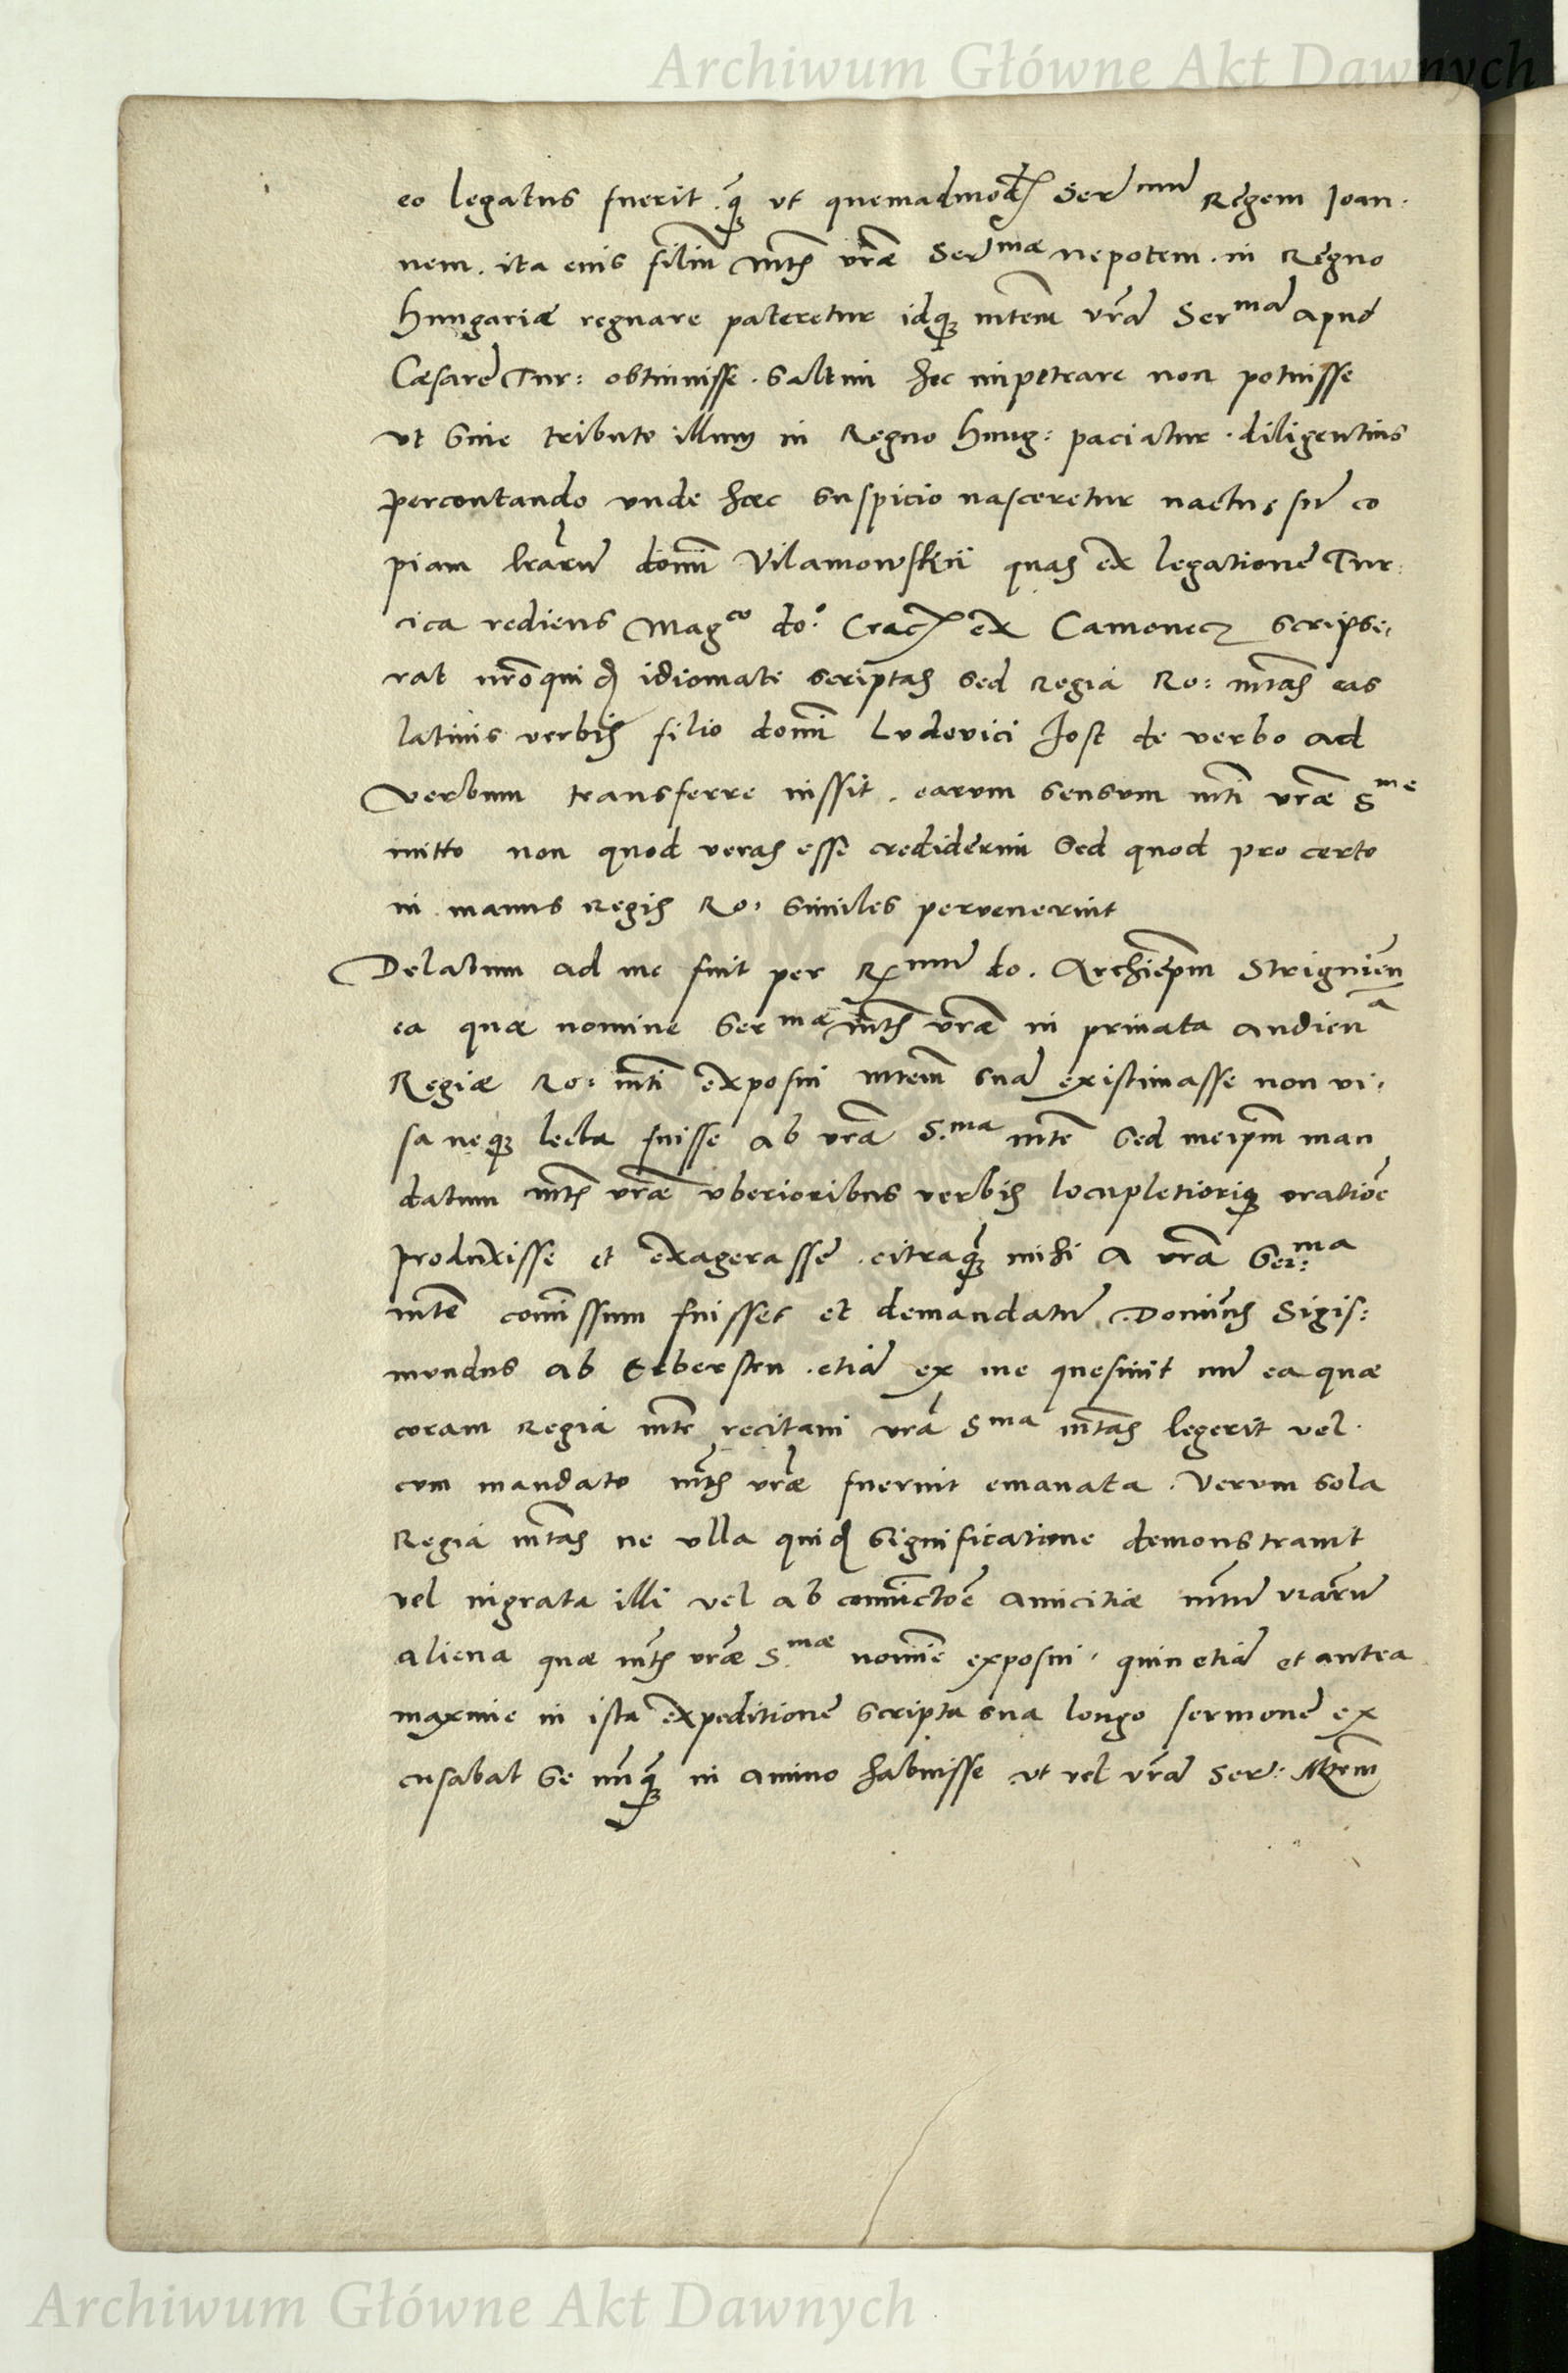 Archiwum Główne Akt Dawnych
eo legatus fuerit. q̃ ut quemadmod Serᵐᵘ̃ Regem Joan.
nem. ita eius filiũ Mtis vrae Serᵐᵃᵉ nepotem. in Regno
Hungariae regnare pateretur idq; mtem vrã Serᵐᵃ̃ apud
Caesarẽ Tur: obtinuisse. saltim hoc impetrare non potuisse
ut sine tributo illum in Regno Hung: paciatur. diligentius
percontando unde haec suspicio nasceretur nactus sũ co
piam lrarũ domi Vilamowskii quas ex legatione Tur:
cica rediens Magᶜᵒ do: Crac ex Camenecz scripse,
rat nrõ quid idiomate scriptas sed Regia Ro: mtas eas
latinis verbis filio domi Ludovici Jost de verbo ad
verbum transferre iussit. earum sensum mti vrae Sᵐᵉ
mitto non quod veras esse crediderim sed quod pro certo
in manus Regis Ro. similes pervenerint
Delatum ad me fuit per Rᵐᵘ̃ do. Archiepm Strigonien
ea quae nomine Serᵐᵃᵉ mtis vrae in privata audienᵃ
Regiae Ro: mti exposui mtem suã existimasse non vi,
sa neq; lecta fuisse ab vrã S.ᵐᵃ mte sed meipm man
datum mtis vrae uberioribus verbis locupletioriq; oratiõe
produxisse et exagerasse. citraq̃; mihi a vrã Ser:ᵐᵃ
mte comissum fuisset et demandatũ. Dominus Sigis:
mundus ab Erberstin. etiã ex me quesivit nũ ea quae
coram Regia mte recitavi vrã Sᵐᵃ mtas legerit vel.
cum mandato mtis vrae fuerint emanata. Verum sola
Regia mtas ne ulla quid significatione demonstravit
vel ingrata illi vel ab coniunctõe amicitiae mtum vrarũ
aliena quae mtis vrae S.ᵐᵃᵉ nomine exposui. quin etiã et antea
maxime in ista expeditione scripta sua longo sermone ex
cusabat se nunq̃ in animo habuisse ut vel vrã Ser: Mtem
Archiwum Główne Akt Dawnych